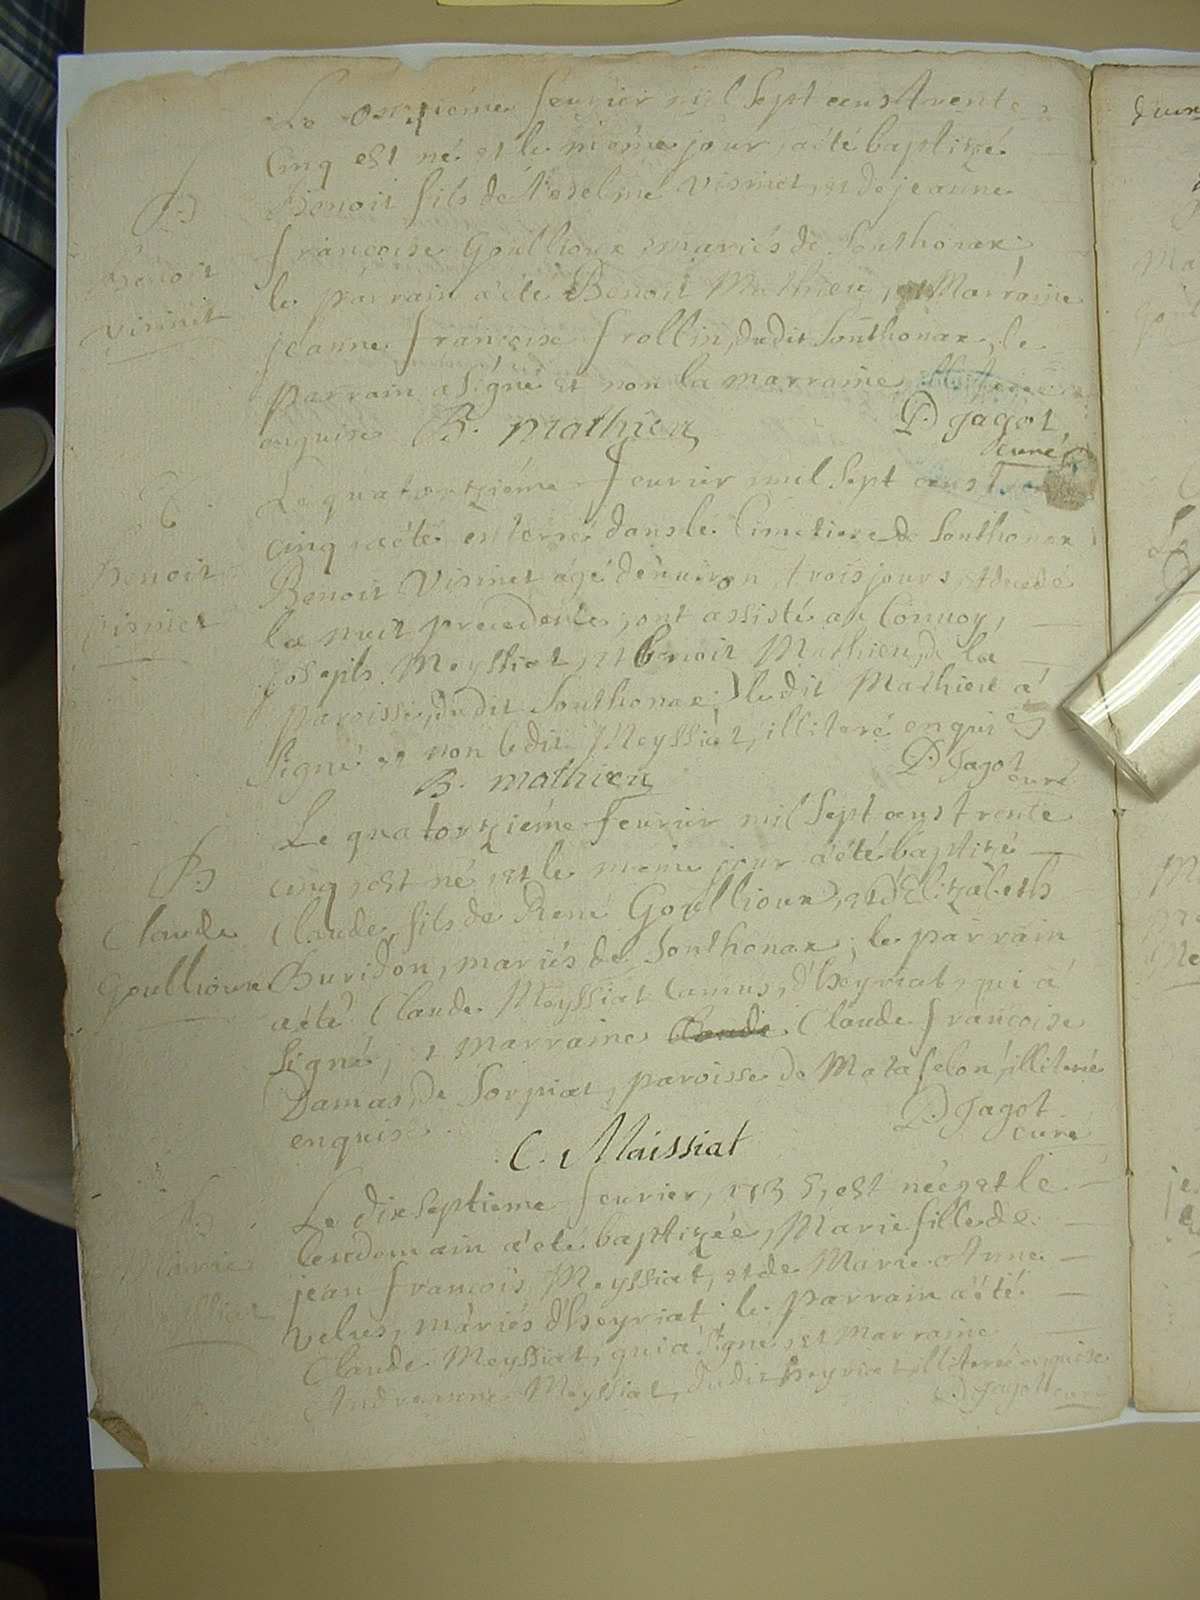 Le onzième feurier mil Sept cens trente
Cinq est né et le même jour a été baptizé
B
Benoit fils de Vismet, et de jeanne
Benoit
françoise Goullioux mariés de Sonthonax;
Vismet
le parrain a été Benoit Mathieu, et Marraine
jeanne françoise frollin, dudit Sonthonax, le
parrain a signé et non la marraine
enquise B. mathieu P. Jagot
curé
E
Le quatorzième feurier mil Sept cens
cinq a été enterré dans le Cimetiere de Sonthonax
Benoit
Benoit Vismet âgé denuiron trois jours, decedé
vismet
la nuit precedente, ont assisté au Conuoy,
joseph Meyssiat, et benoit Mathieu, de la
paroisse dudit Sonthonax; ledit Mathieu a
signé et non ledit Meyssiat, illiteré enquis
B. mathieu P. Jagot
curé
Le quatorzième feurier mil Sept cens trente
B
cinq, est né, et le meme jour a été baptizé
Claude
Claude, fils de René Goullioux, et d'Elizabeth
Goullioux
Buridon, mariés de Sonthonax; le parrain
a été Claude Meyssiat Camus, d'heyriat, qui a
signé, et Marraine Claude françoise
Damas, de Sorpiat, paroisse de Matafelon, illiterée
enquise. P. Jagot
curé
C. Maissiat
B
Le dixseptieme feurier, 1735, est née, et le
Marie
lendemain a été baptizée, Marie fille de
jean françois Meyssiat, et de Marie Anne
velus, mariés d'heyriat; le parrain a été
Claude Meyssiat, qui a signé, et Marraine
Meyssiat, dudit heyriat, illiterée enquise
P. Jagot curé